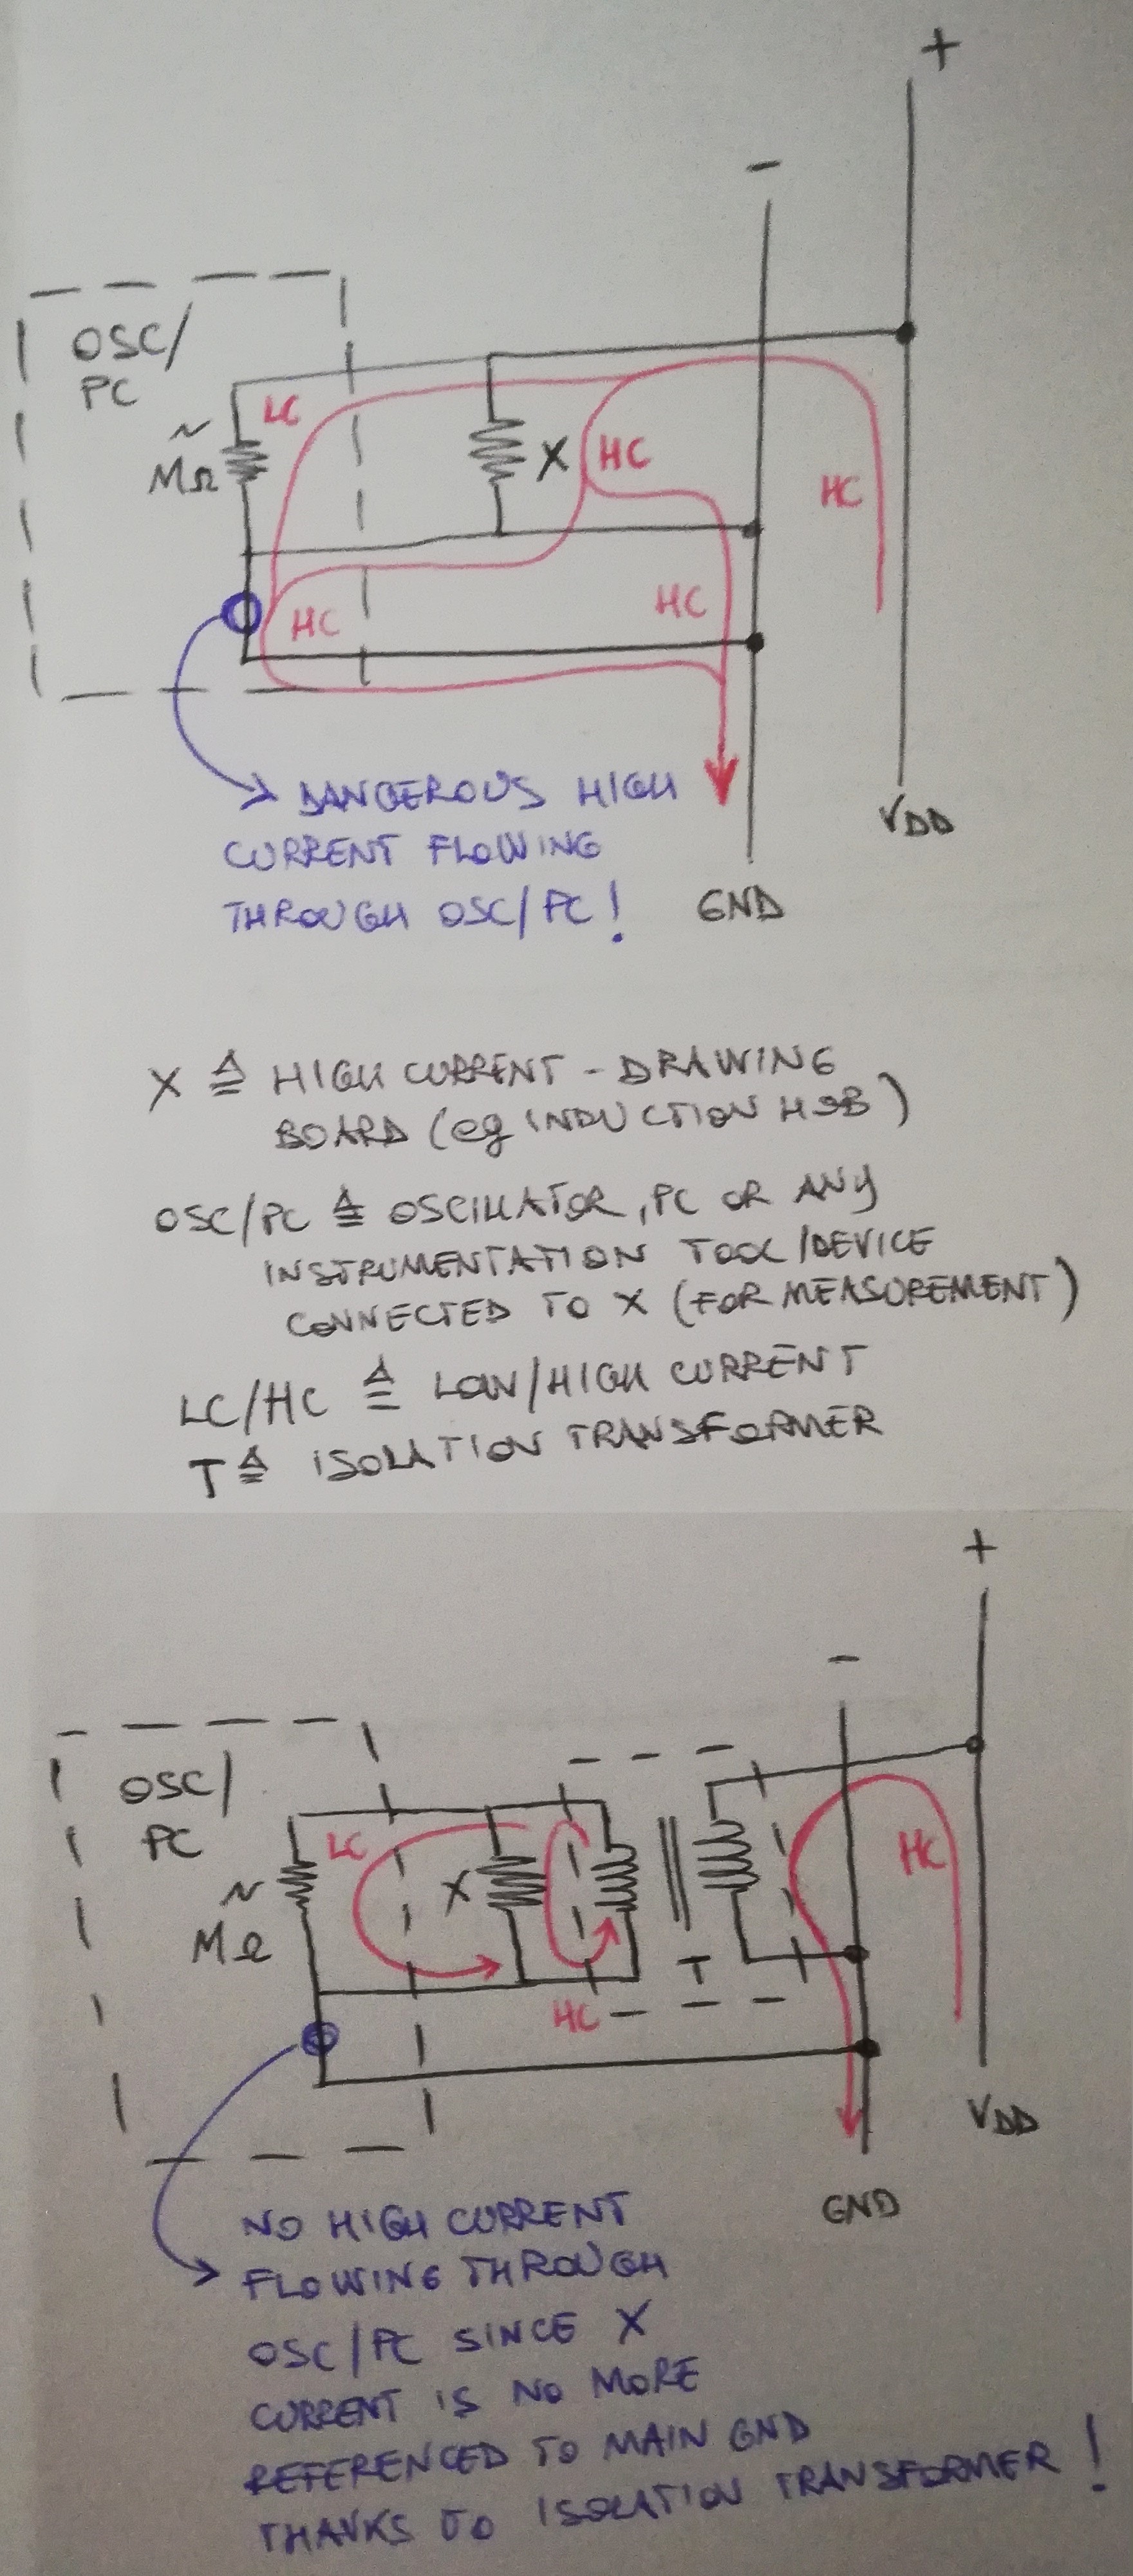 +
-
OSC/
PC
LC
~
MΩ
X
HC
HC
HC
HC
DANGEROUS HIGH
CURRENT FLOWING
THROUGH OSC/PC!
VDD
GND
X ≜ HIGH CURRENT - DRAWING
BOARD (eg INDUCTION HOB)
OSC/PC ≜ OSCILLATOR, PC OR ANY
INSTRUMENTATION TOOL/DEVICE
CONNECTED TO X (FOR MEASUREMENT)
LC/HC ≜ LOW/HIGH CURRENT
T ≜ ISOLATION TRANSFORMER
+
-
OSC/
PC
LC
~
MΩ
X
HC
T
HC
VDD
GND
NO HIGH CURRENT
FLOWING THROUGH
OSC/PC SINCE X
CURRENT IS NO MORE
REFERENCED TO MAIN GND
THANKS TO ISOLATION TRANSFORMER!